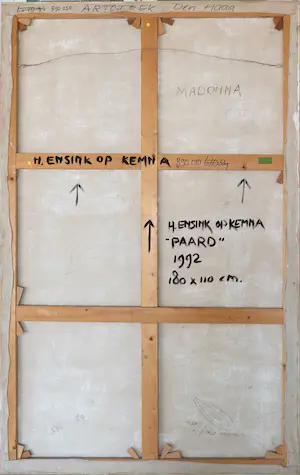 ARTOTHEEK Den Haag
MADONNA
H. ENSINK OP KEMNA
H. ENSINK OP KEMNA
"PAARD"
1992
180 x 110 cm.